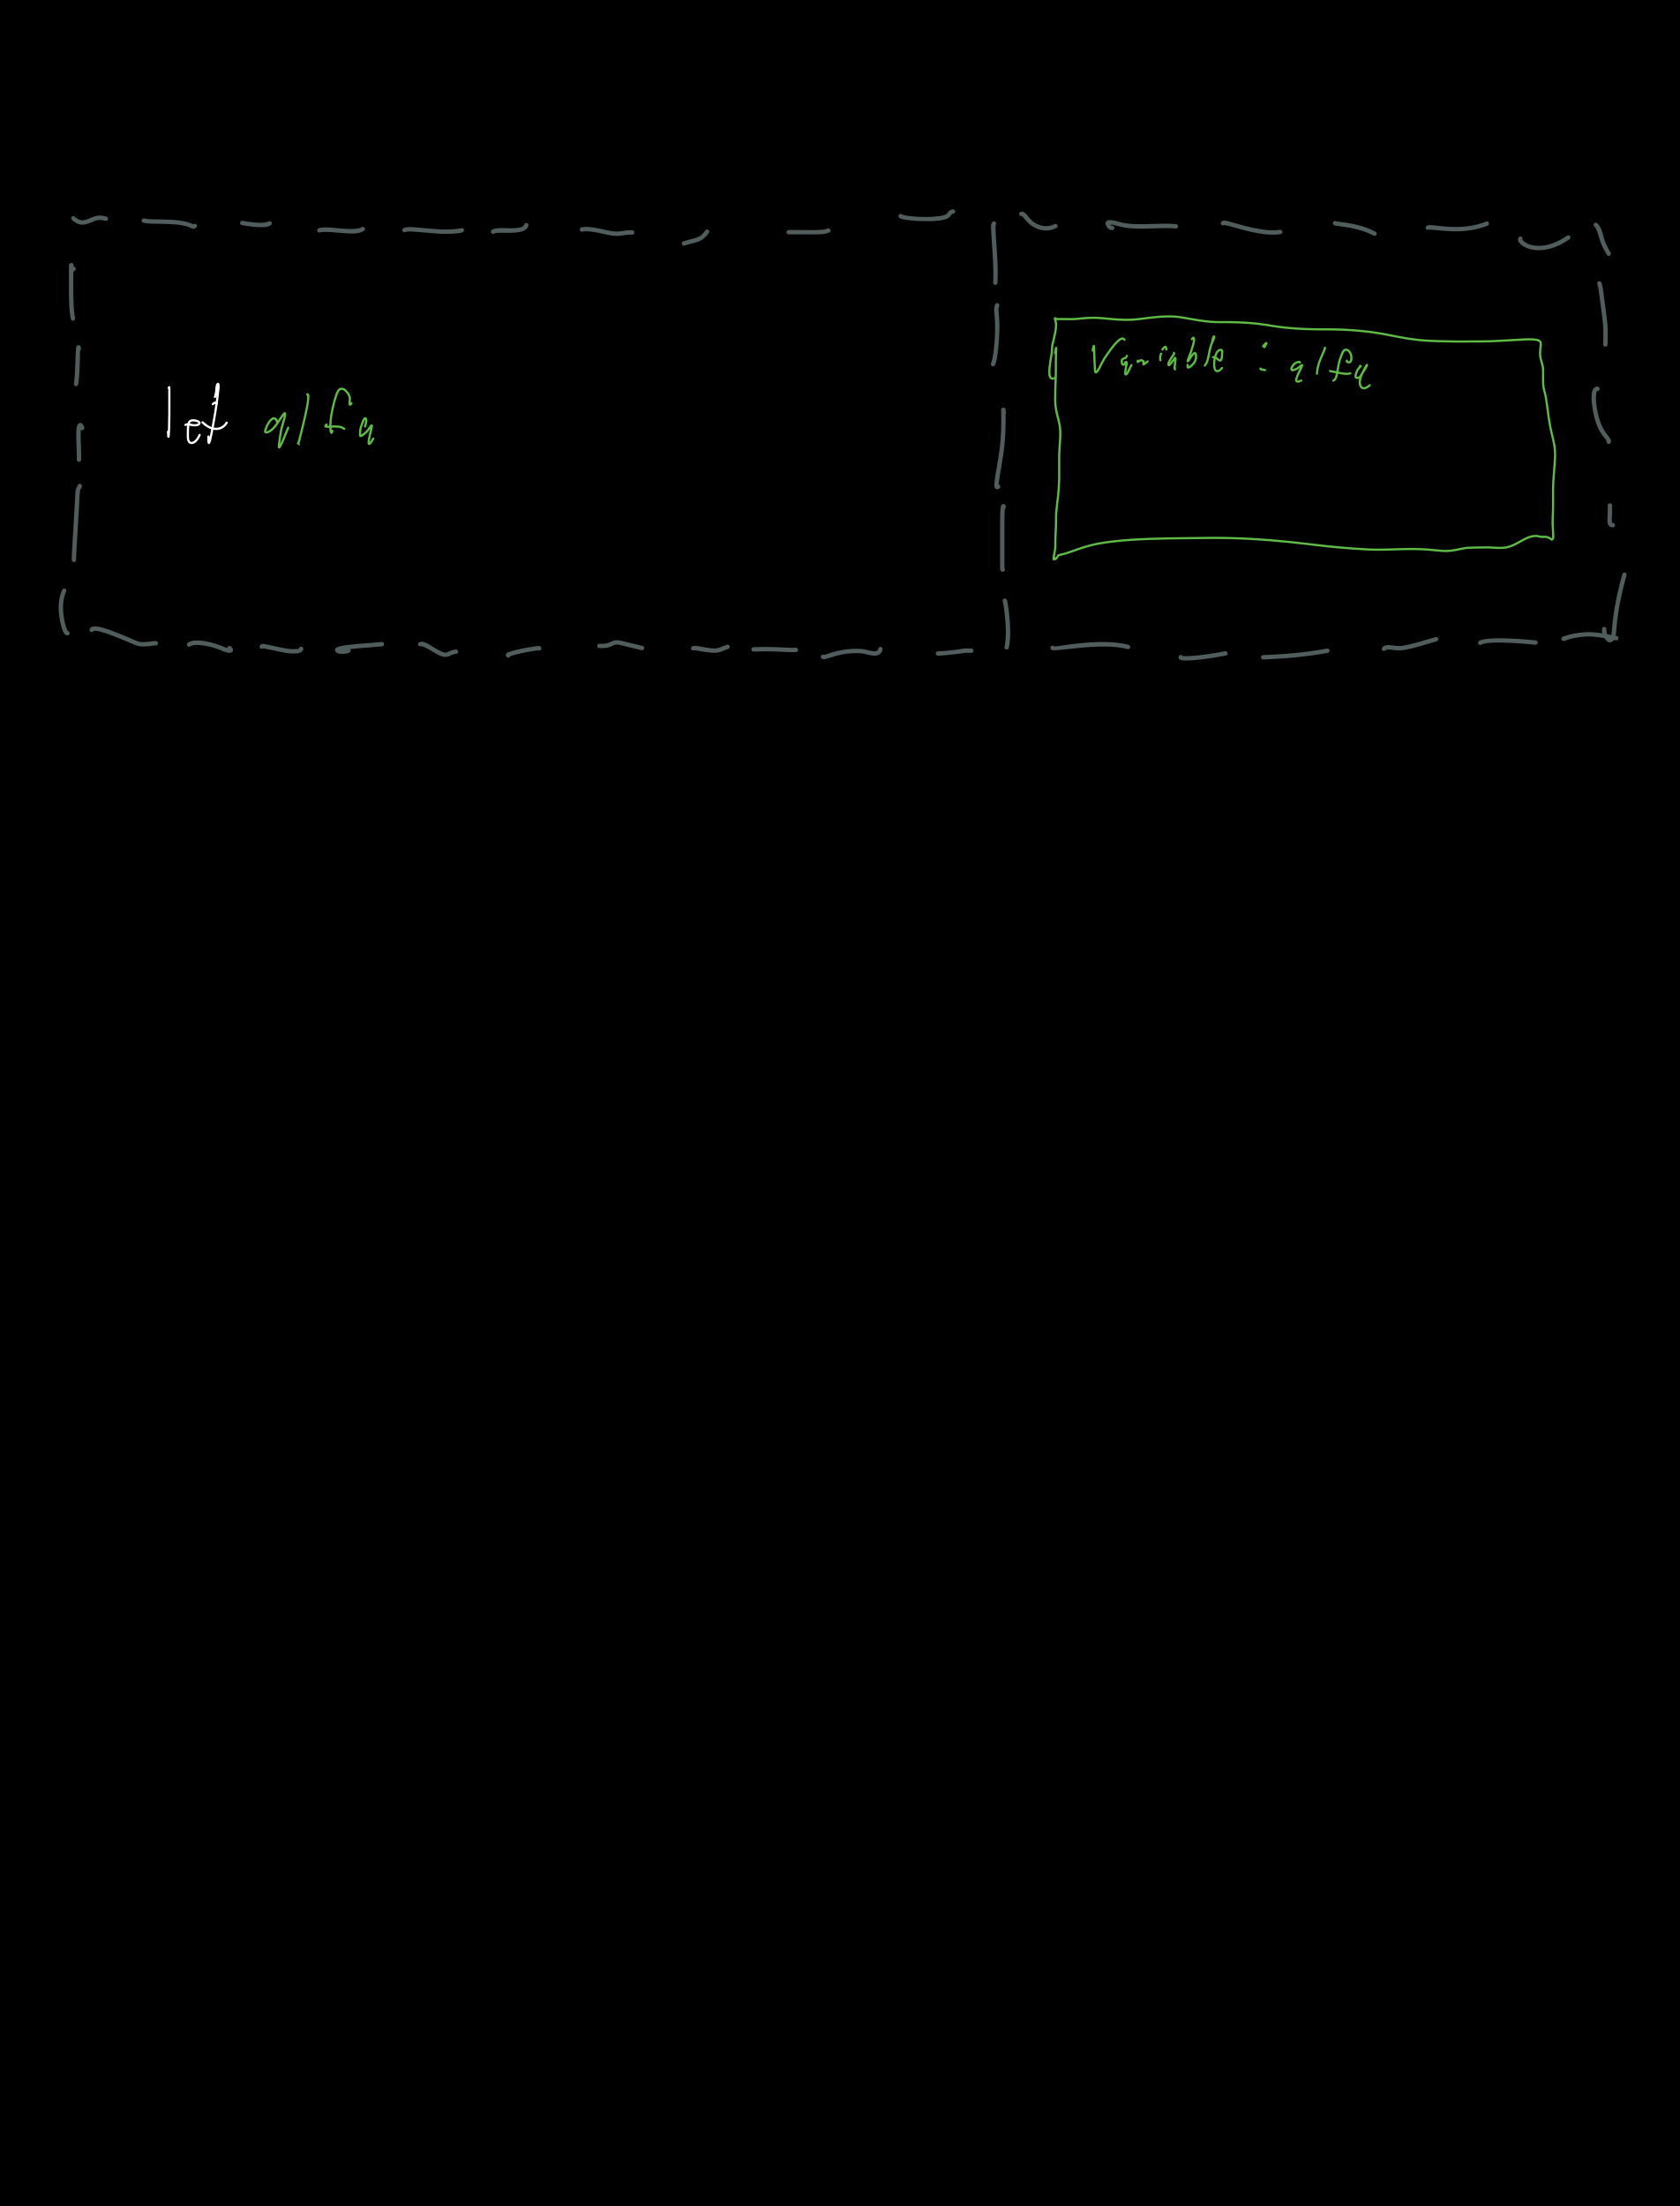 let alfa
Variable : alfa